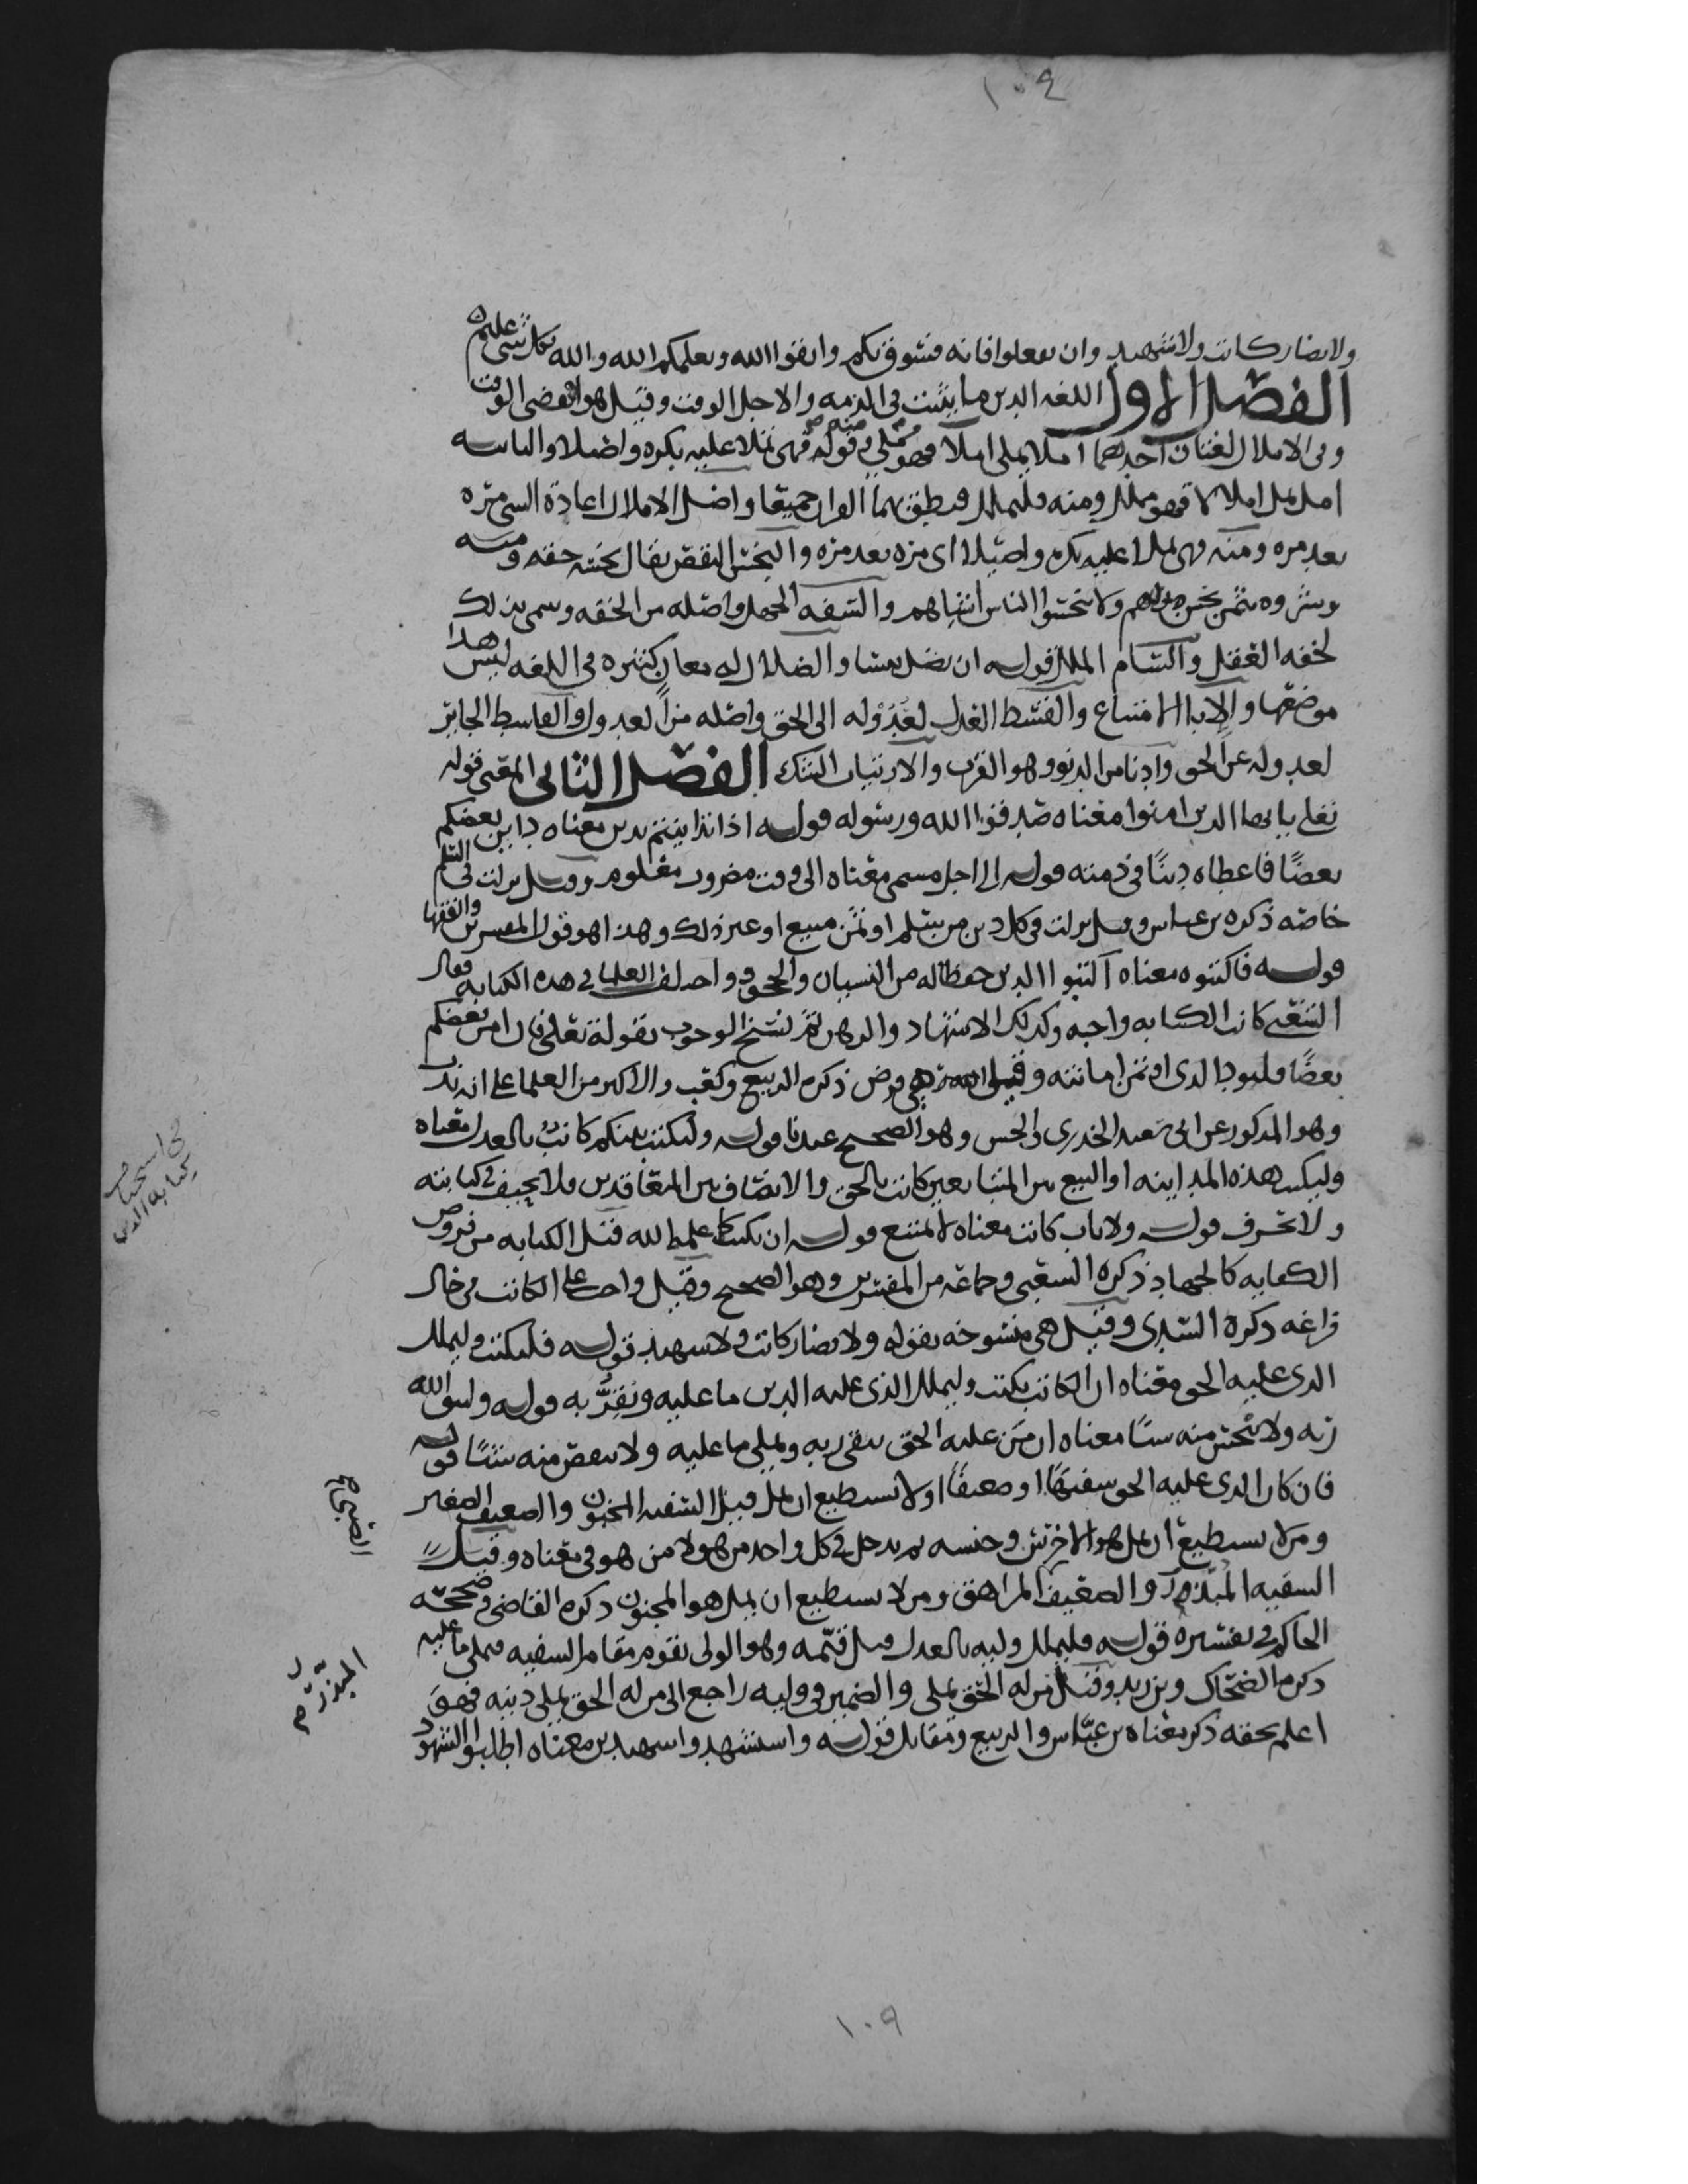 ١٠٩
ولا يضار كاتب ولا شهيد وان تفعلوا فانه فسوق بكم واتقوا الله ويعلمكم الله والله بكل شي عليم
الفصل الاول اللغه الدين ما يثبت في الذمه والاجل الوقت وقيل هو انقضى الوقت
وفي الاملال لغتان احدهما املا يملي املا فهو مملي ومنه قوله فهى تملا عليه بكره واصيلا والثانيه
امل يمل املالا فهو ممل ومنه وليملل فنطق بهما القران جميعا واصل الاملال اعادة الشي مره
بعد مره ومنه فهى تملا عليه بكره واصيلا اى مره بعد مره والبخس النقص يقال بخسه حقه ومنه
وشروه بثمن بخس دراهم ولا تبخسوا الناس اشياهم والسفه الجهل واصله من الخفه وسمى بذلك
لخفه العقل والسام الملل قوله ان تضل ‏والضلال له معان كثيره في اللغه ليس هذا
موضعها والابا الامتناع والقسط العدل لعُدُوله الى الحق واصله من العدول والقاسط الجاير
لعدوله عن الحق وادنا من الدنو وهو القرب والارتياب الشك الفصل الثاني المعنى قوله
تعلى يا ايها الذين امنوا معناه صدقوا الله ورسوله قوله اذا تداينتم بدين معناه داين بعضكم
بعضًا فاعطاه دينًا في ذمته قوله الى اجل مسمى معناه الى وقت مضروب معلوم وقيل نزلت في السلم
خاصه ذكره بن عباس وقيل نزلت في كل دين من سلم او ثمن مبيع او غير ذلك وهذا هو قول المفسرين والفقها
قوله فاكتبوه معناه اكتبوا الدين حفظا له من النسيان والجحود واختلف العلما في هذه الكتابه فقال
الشعبى كانت الكتابه واجبه وكذلك الاشهاد والرهن ثم نسخ الوجوب بقوله تعلى فان امن بعضكم
بعضًا فليود الذى اوتمن امانته وقيل هى فرض ذكره الربيع وكعب والاكثر من العلما على انه ندب
وهو المذكور عن ابى سعيد الخدرى والحسن وهو الصحيح عندنا قوله وليكتب بينكم كاتب بالعدل معناه
وليكتب هذه المداينه او البيع بين المتبايعين كاتب بالحق والانصاف بين المتعاقدين ولا يحيف في كتابته
ولا تحرف قوله ولا ياب كاتب معناه لا يمتنع قوله ان يكتب كما علمه الله فقيل الكتابه من فروض
الكفايه كالجهاد ذكره الشعبى وجماعه من المفسرين وهو الصحيح وقيل واجب على الكاتب في حال
فراغه ذكره السدى وقيل هى منسوخه بقوله ولا يضار كاتب ولا شهيد قوله فليكتب وليملل
الذى عليه الحق معناه ان الكاتب يكتب وليملل الذى عليه الدين ما عليه ويُقِرُّ به قوله وليتق الله
ربه ولا يبخس منه شيًا معناه ان من عليه الحق يتقى ربه ويملي ما عليه ولا ينقص منه شيًا قوله
فان كان الذى عليه الحق سفيهًا او ضعيفًا او لا يستطيع ان يمل فقيل السفيه المجنون والضعيف الصغير
ومن لا يستطيع ان يمل هو الاخرس وجنسه ثم يدخل في كل واحد من هولا من هو في معناه وقيل
السفيه المبذر والضعيف المراهق ومن لا يستطيع ان يمل هو المجنون ذكره القاضى وصححه
الحاكم في تفسيره قوله فليملل وليه بالعدل قيل قيّمه وهو الولى يقوم مقام السفيه فيملي ما عليه
ذكره الضحاك وبن زيد وقيل من له الحق يملي والضمير في وليه راجع الى من له الحق يملي دينه فهو
اعلم بحقه ذكر معناه بن عبّاس والربيع ومقاتل قوله واستشهدوا شهيدين معناه اطلبوا الشهود
في استحباب
كتابه الدين
المبذر
١٠٩